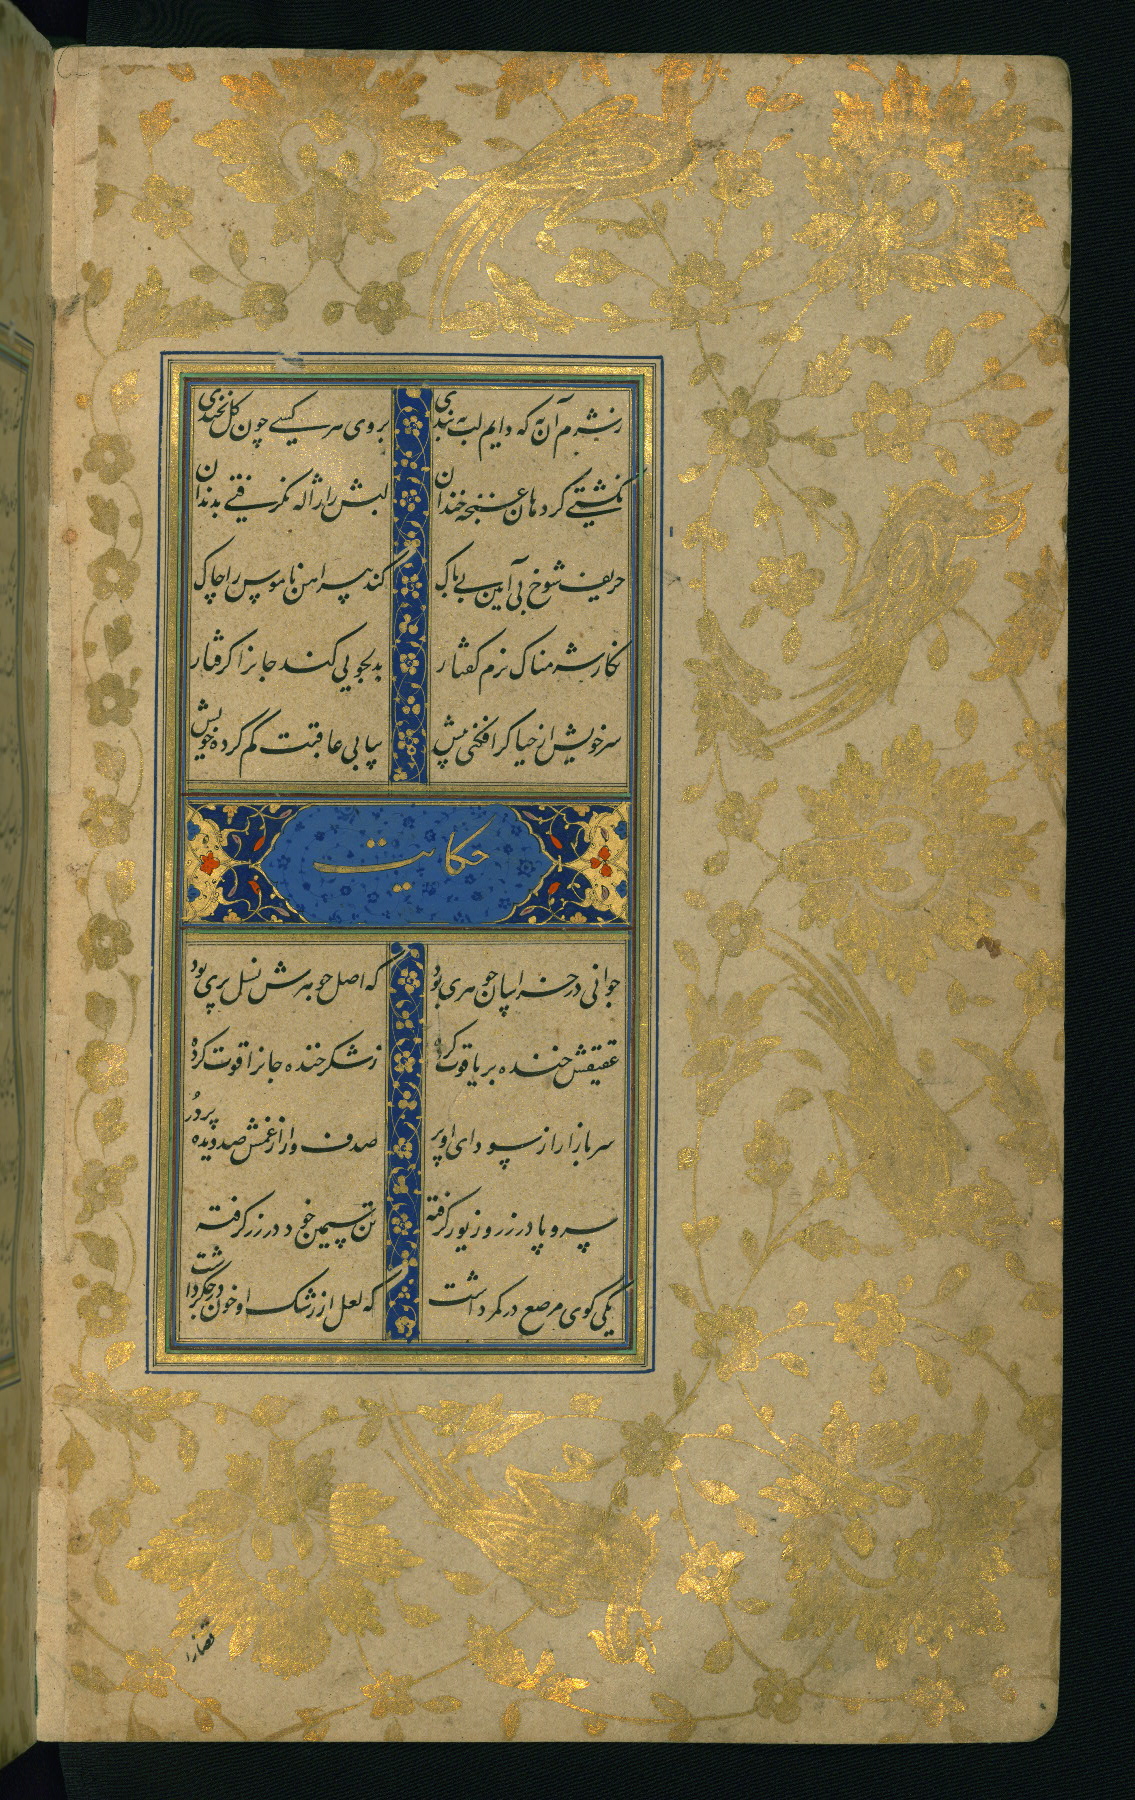 ز شرم آن به که دایم لب ببندی بروی هر کسی چون گل نخندی
نگشتی گر دهان غنچه خندان لبش را ژاله نگرفتی بدندان
حریف شوخ بی آیین بی باک کند پیراهن ناموس را چاک
نگار شرمناک نرم گفتار بدلجویی کند جانرا گرفتار
سر خویش از حیا گر افکنی پیش بیابی عاقبت گم کرده خویش
حکایت
جوانی در خراسان جوهری بود که اصل جوهرش نسل پری بود
عقیقش خنده بر یاقوت کرده ز شکر خنده جانرا قوت کرده
سر بازار از سودای او پر صدف وار از غمش صد دیده پر در
سر و پا در زر و زیور گرفته تن سیمین خود در زر گرفته
یکی گوی مرصع در کمر داشت که لعل از رشک او خون در جگر داشت
قضا را